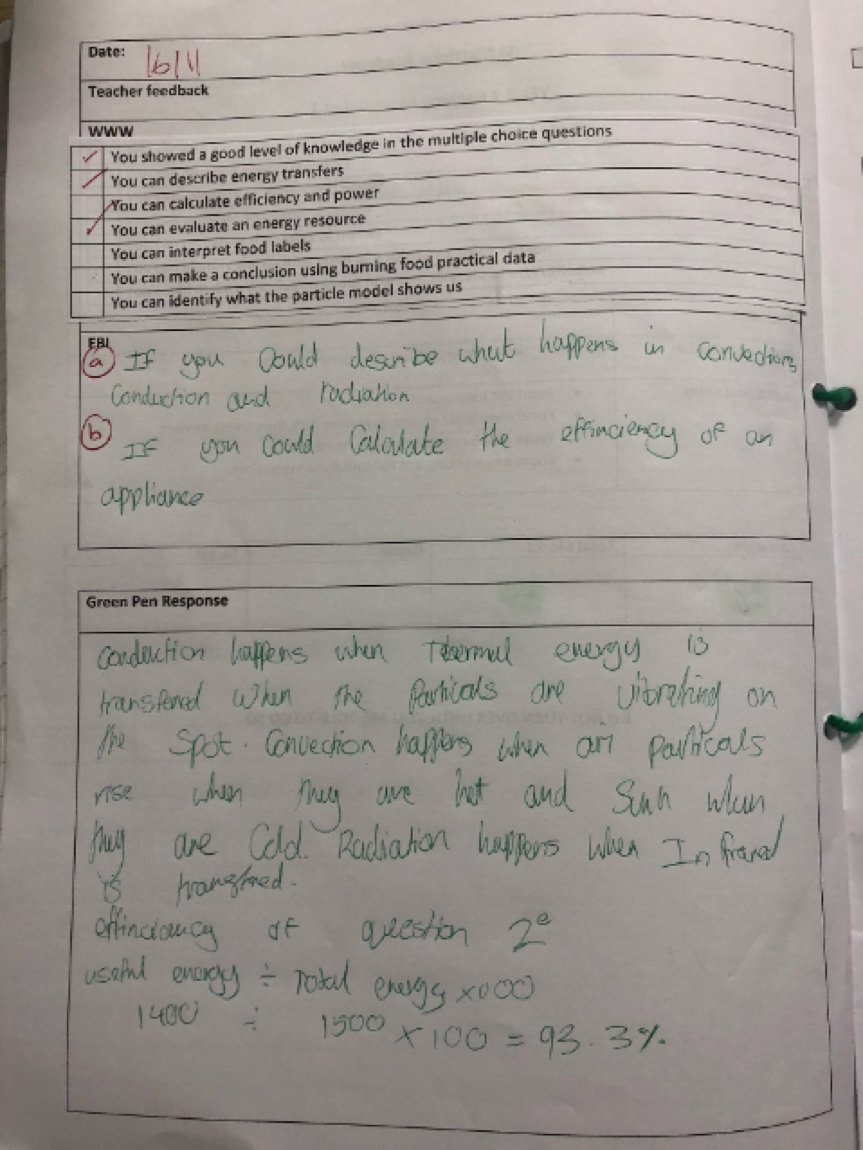 Date: 16/11
Teacher feedback
WWW
You showed a good level of knowledge in the multiple choice questions
You can describe energy transfers
You can calculate efficiency and power
You can evaluate an energy resource
You can interpret food labels
You can make a conclusion using burning food practical data
You can identify what the particle model shows us
EBI
a If you could describe what happens in convection,
Conduction and radiation
b If you could Calculate the effinciency of an
appliance
Green Pen Response
Conduction happens when Thermal energy is
transfered when the Particals are vibrating on
the spot. Convection happens when particals
rise when they are hot and Sink when
they are Cold. Radiation happens when Infrared
is transfered.
effinciency of question 2e
useful energy ÷ Total energy ×100
1400 ÷ 1500 × 100 = 93.3%